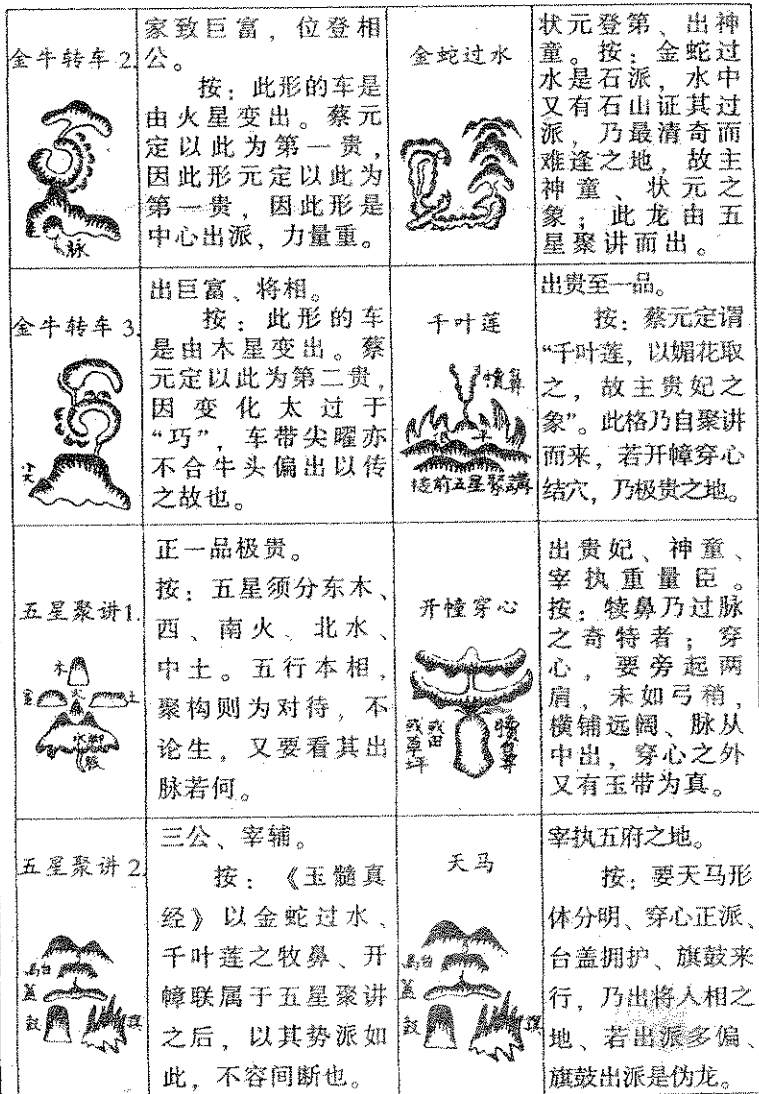 金牛转车2.
脉
家致巨富，位登相
公。
按：此形的车是
由火星变出。蔡元
定以此为第一贵，
因此形元定以此为
第一贵，因此形是
中心出派，力量重。
金蛇过水
状元登第、出神
童。按：金蛇过
水是石派，水中
又有石山证其过
派，乃最清奇而
难逢之地，故主
神童、状元之
象；此龙由五
星聚讲而出。
金牛转车3.
出巨富、将相。
按：此形的车
是由木星变出。蔡
元定以此为第二贵，
因变化太过于
“巧”，车带尖曜亦
不合牛头偏出以传
之故也。
千叶莲
五星聚講
出贵至一品。
按：蔡元定谓
“千叶莲，以媚花取
之，故主贵妃之
象”。此格乃自聚讲
而来，若开幛穿心
结穴，乃极贵之地。
五星聚讲1.
木
火
土
水
正一品极贵。
按：五星须分东木、
西、南火、北水、
中土。五行本相，
聚构则为对待，不
论生，又要看其出
脉若何。
开幢穿心
或田
或草坪
出贵妃、神童、
宰执重量臣。
按：犊鼻乃过脉
之奇特者；穿
心，要旁起两
肩，未如弓稍，
横铺远阔、脉从
中出，穿心之外
又有玉带为真。
五星聚讲2.
台
盖
鼓
旗
三公、宰辅。
按：《玉髓真
经》以金蛇过水、
千叶莲之牧鼻、开
幛联属于五星聚讲
之后，以其势派如
此，不容间断也。
天马
台
盖
鼓
旗
宰执五府之地。
按：要天马形
体分明、穿心正派、
台盖拥护、旗鼓来
行，乃出将入相之
地、若出派多偏、
旗鼓出派是伪龙。